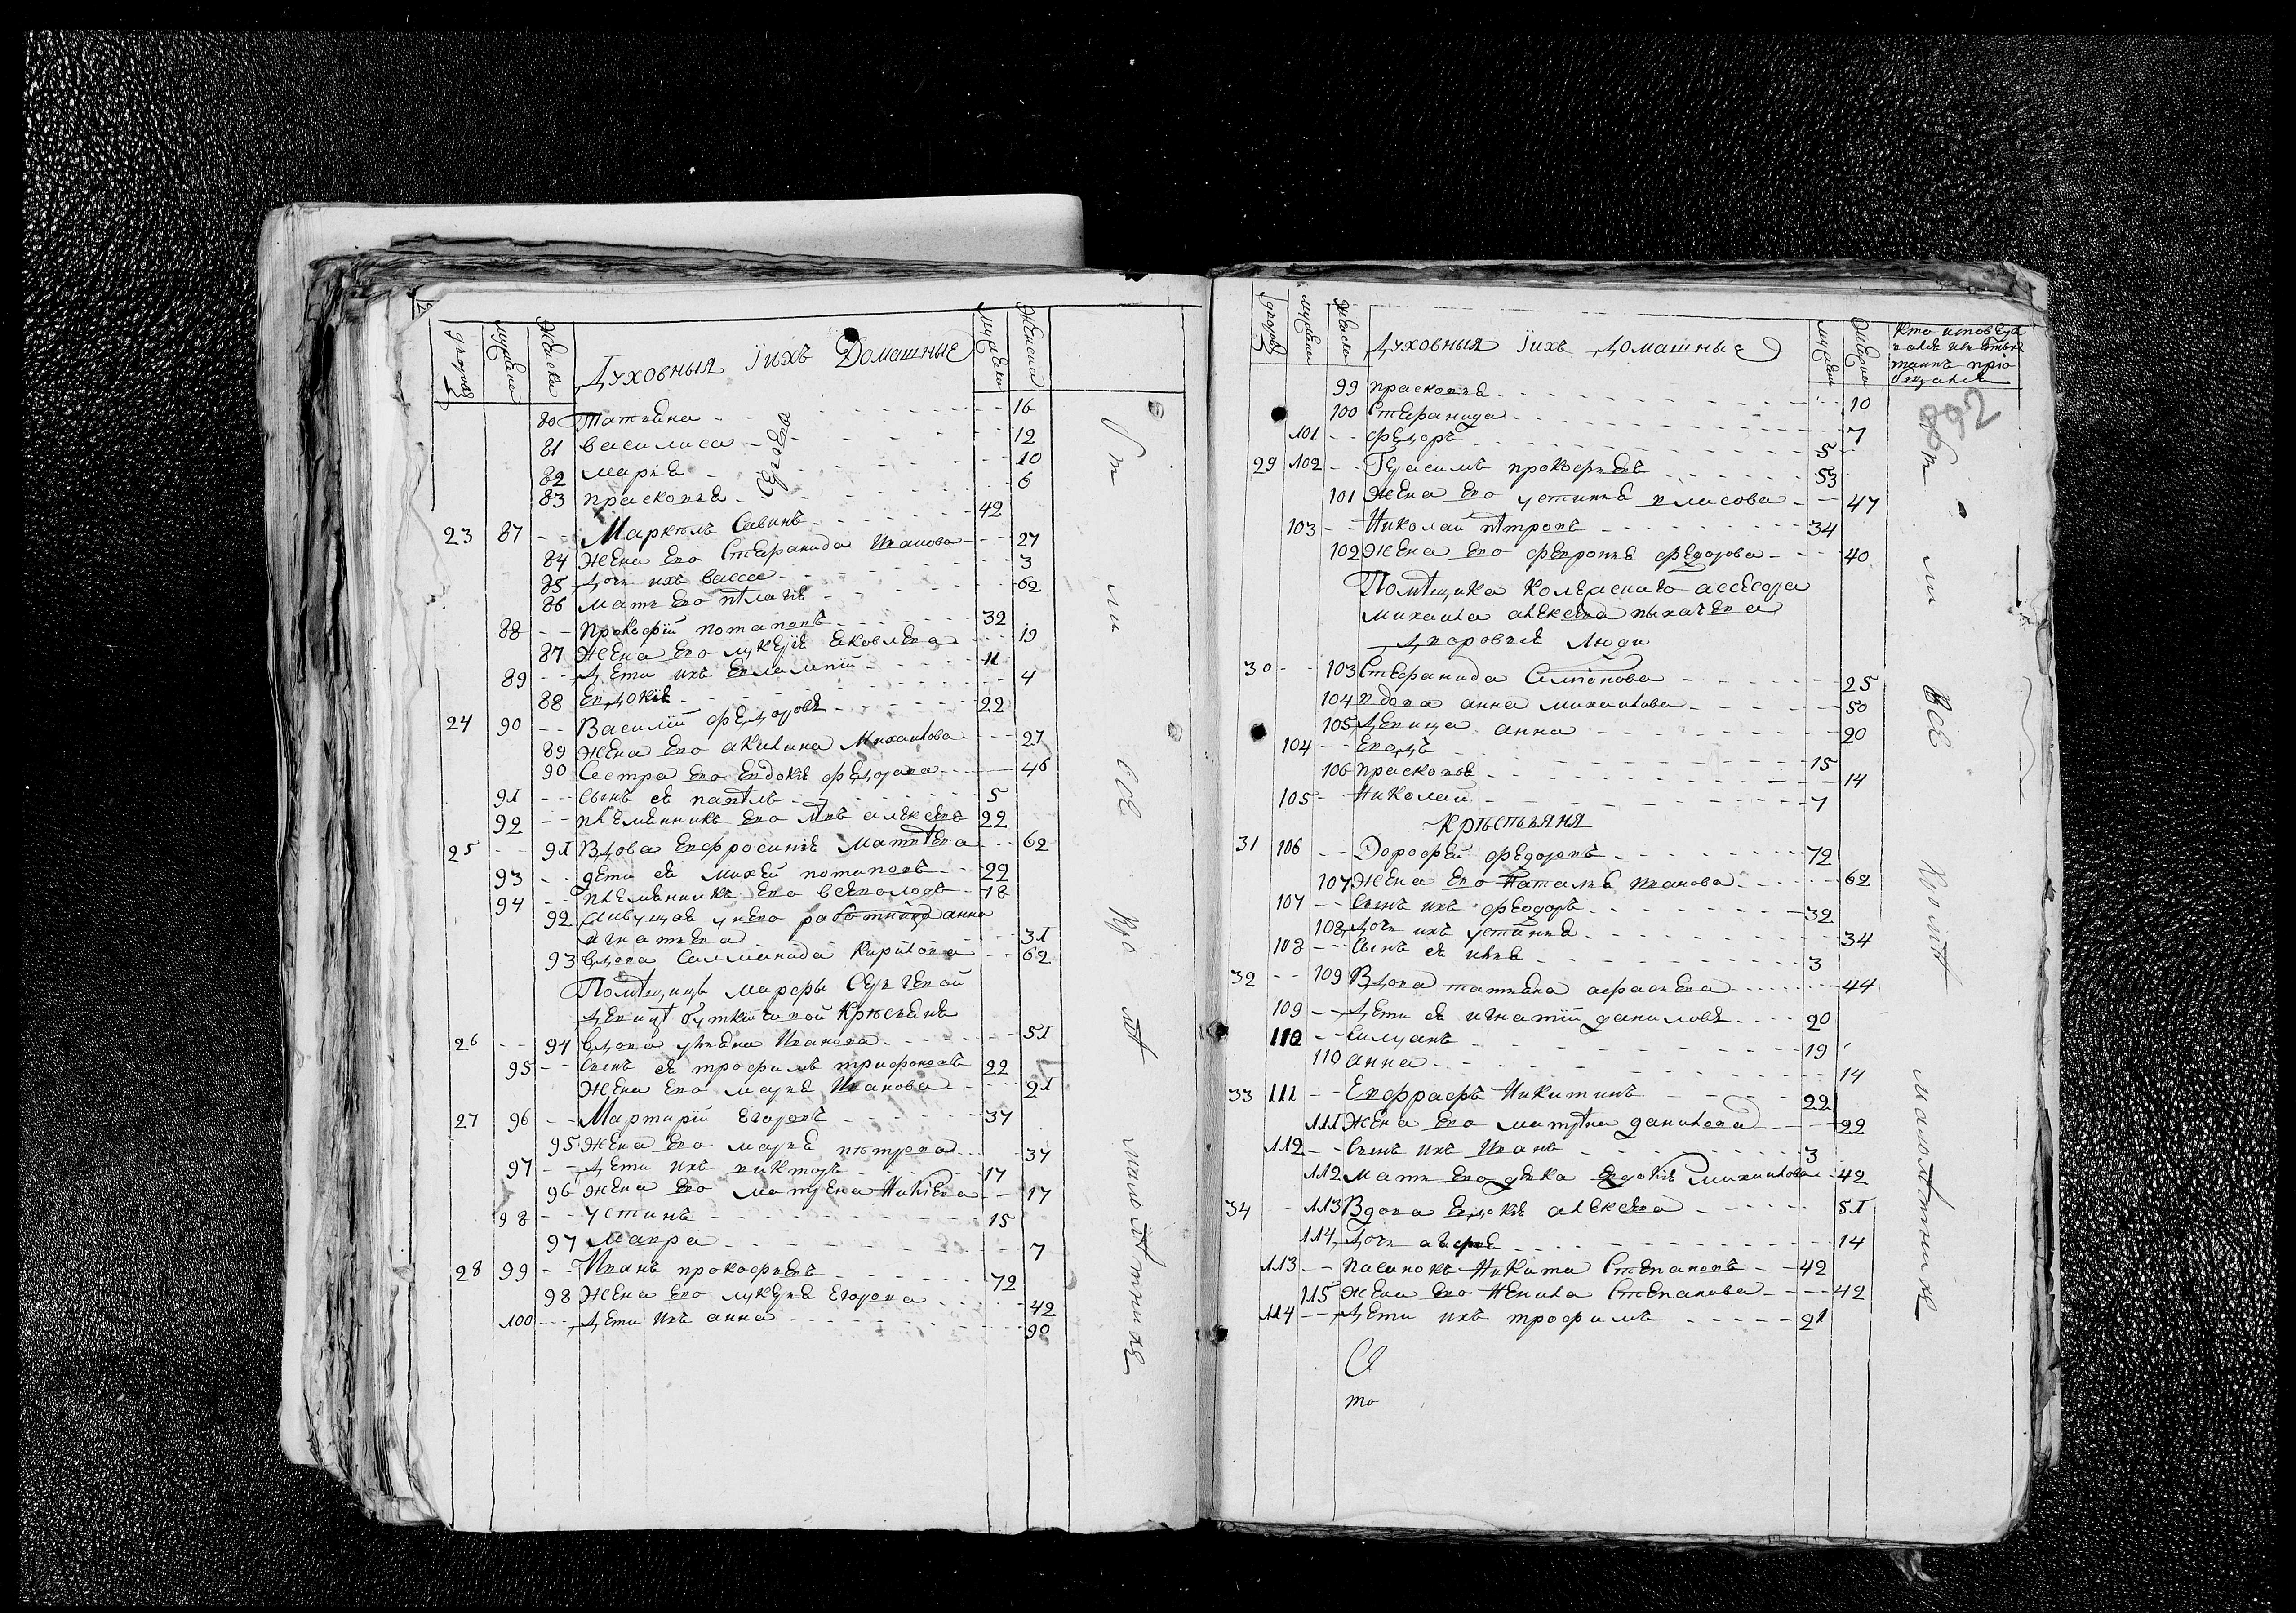 дворовъ мужеска женска Духовныя ӏихъ Домашные мужеска женска
80 Татьяна 16
81 василиса 12
82 марья 10
83 прасковья 6
23 87 Маркелъ Савинъ 42
84 жена ево Стефанида Иванова 27
85 дочь ихъ васса 3
86 мать ево пелагѣя 62
88 Прокофїй потаповъ 32
87 жена ево лукерїя яковлева 19
89 дети ихъ евлампїй 11
88 Евдокїя 4
24 90 Василїй федоровъ 22
89 жена ево акилина Михаилова 27
90 Сестра ево Евдокїя федорова 46
91 сынъ ея павелъ 5
92 племянникъ ево алексѣевъ 22
25 91 Вдова Ефросинья Матвѣева 62
93 дети ея михей потаповъ 22
94 племянникъ ево всеволодъ 18
92 Живущая у нево работница анна
игнатьева 31
93 вдова Саломанида Карпиловна 62
Помѣщицы марфы Сергѣевой
девицы Крестьяня
26 94 вдова ульяна Иванова 51
95 сынъ ея трофимъ трифоновъ 22
жена ево марья Иванова 21
27 96 Мартирїй Егоровъ 37
95 жена ево марья петрова 37
97 дети ихъ викторъ 17
96 жена ево матрена 17
98 устинъ 15
97 мавра 7
28 99 Иванъ прокофьевъ 72
98 жена ево лукерья Егорова 42
100 дети ихъ анна 90
вси кромѣ малолѣтнихъ
дворовъ мужеска женска Духовныя ӏихъ домашные
892
99 прасковья 10
100 Стефанида 7
101 федоръ 5
29 102 Герасимъ прокофьевъ 53
101 жена ево устинья власова 47
103 Николай петровъ 34
102 жена ево февронья федорова 40
Помѣщика Колежскаго ассесора
михаила алексѣева
дворовыя люди
30 103 Стефанида Семїонова 25
104 вдова анна михаилова 50
105 девица анна 20
104 15
106 прасковья 14
105 Николай 7
Крѣстьяня
31 106 Дорофей федоровъ 72
107 жена ево наталья иванова 62
107 сынъ ихъ феодоръ 32
108 дочь ихъ устинья 34
108 сынъ ея илья 3
32 109 Вдова татьяна 44
109 дети ея игнатїй даниловъ 20
110 19
110 анна 14
33 111 Евграфъ Никитинъ 22
111 жена ево матрена данилова 22
112 сынъ ихъ Иванъ 3
112 мать ево девка евдокїя михаилова 42
34 113 Вдова Евдокїя алексѣева 51
114 дочь 14
113 пасынокъ Никита Степановъ 42
115 жена ево Степанова 42
114 дети ихъ трофимъ 21
то
всѣ кромѣ малолѣтнихъ